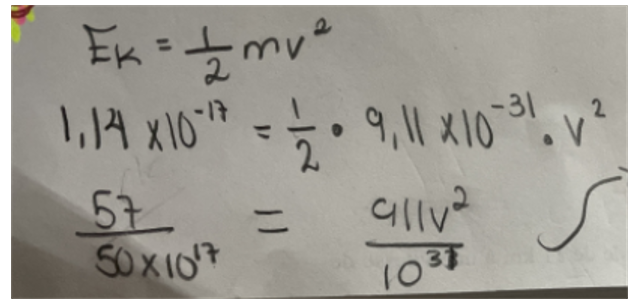 E_K = 1/2 mv²
1,14 ×10⁻¹⁷ = 1/2 • 9,11 ×10⁻³¹ • v²
57/50×10¹⁷ = 911v²/10³¹